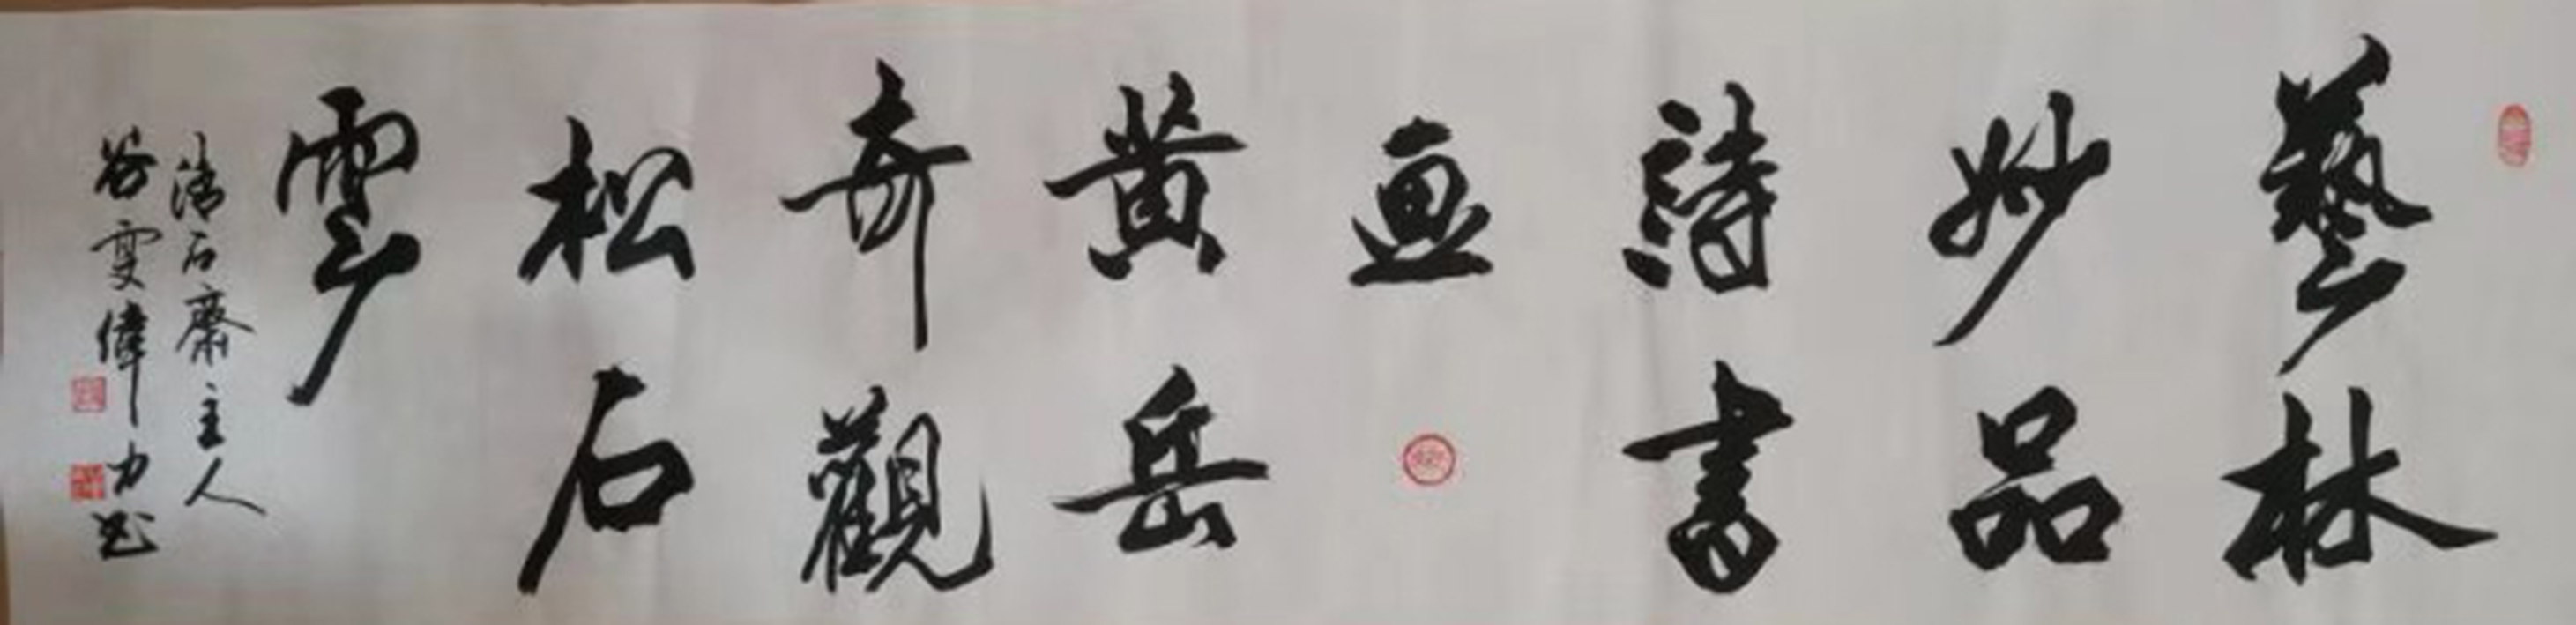 藝林
妙品
詩書
畫
黄岳
奇觀
松石
雲
清石齋主人
谷雯偉力书